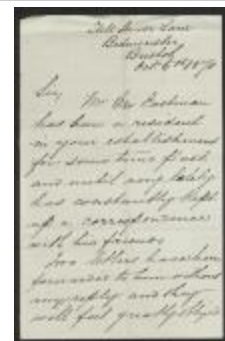 Hill House Lane
Bedminster
Bristol
Oct 6th 1874
Sir
Mr Geo Eastman
has been a resident
in your establishment
for some time past
and until very lately
has constantly kept
up a correspondence
with his friends
Two letters have been
forwarded to him without
any reply and they
will feel greatly obliged